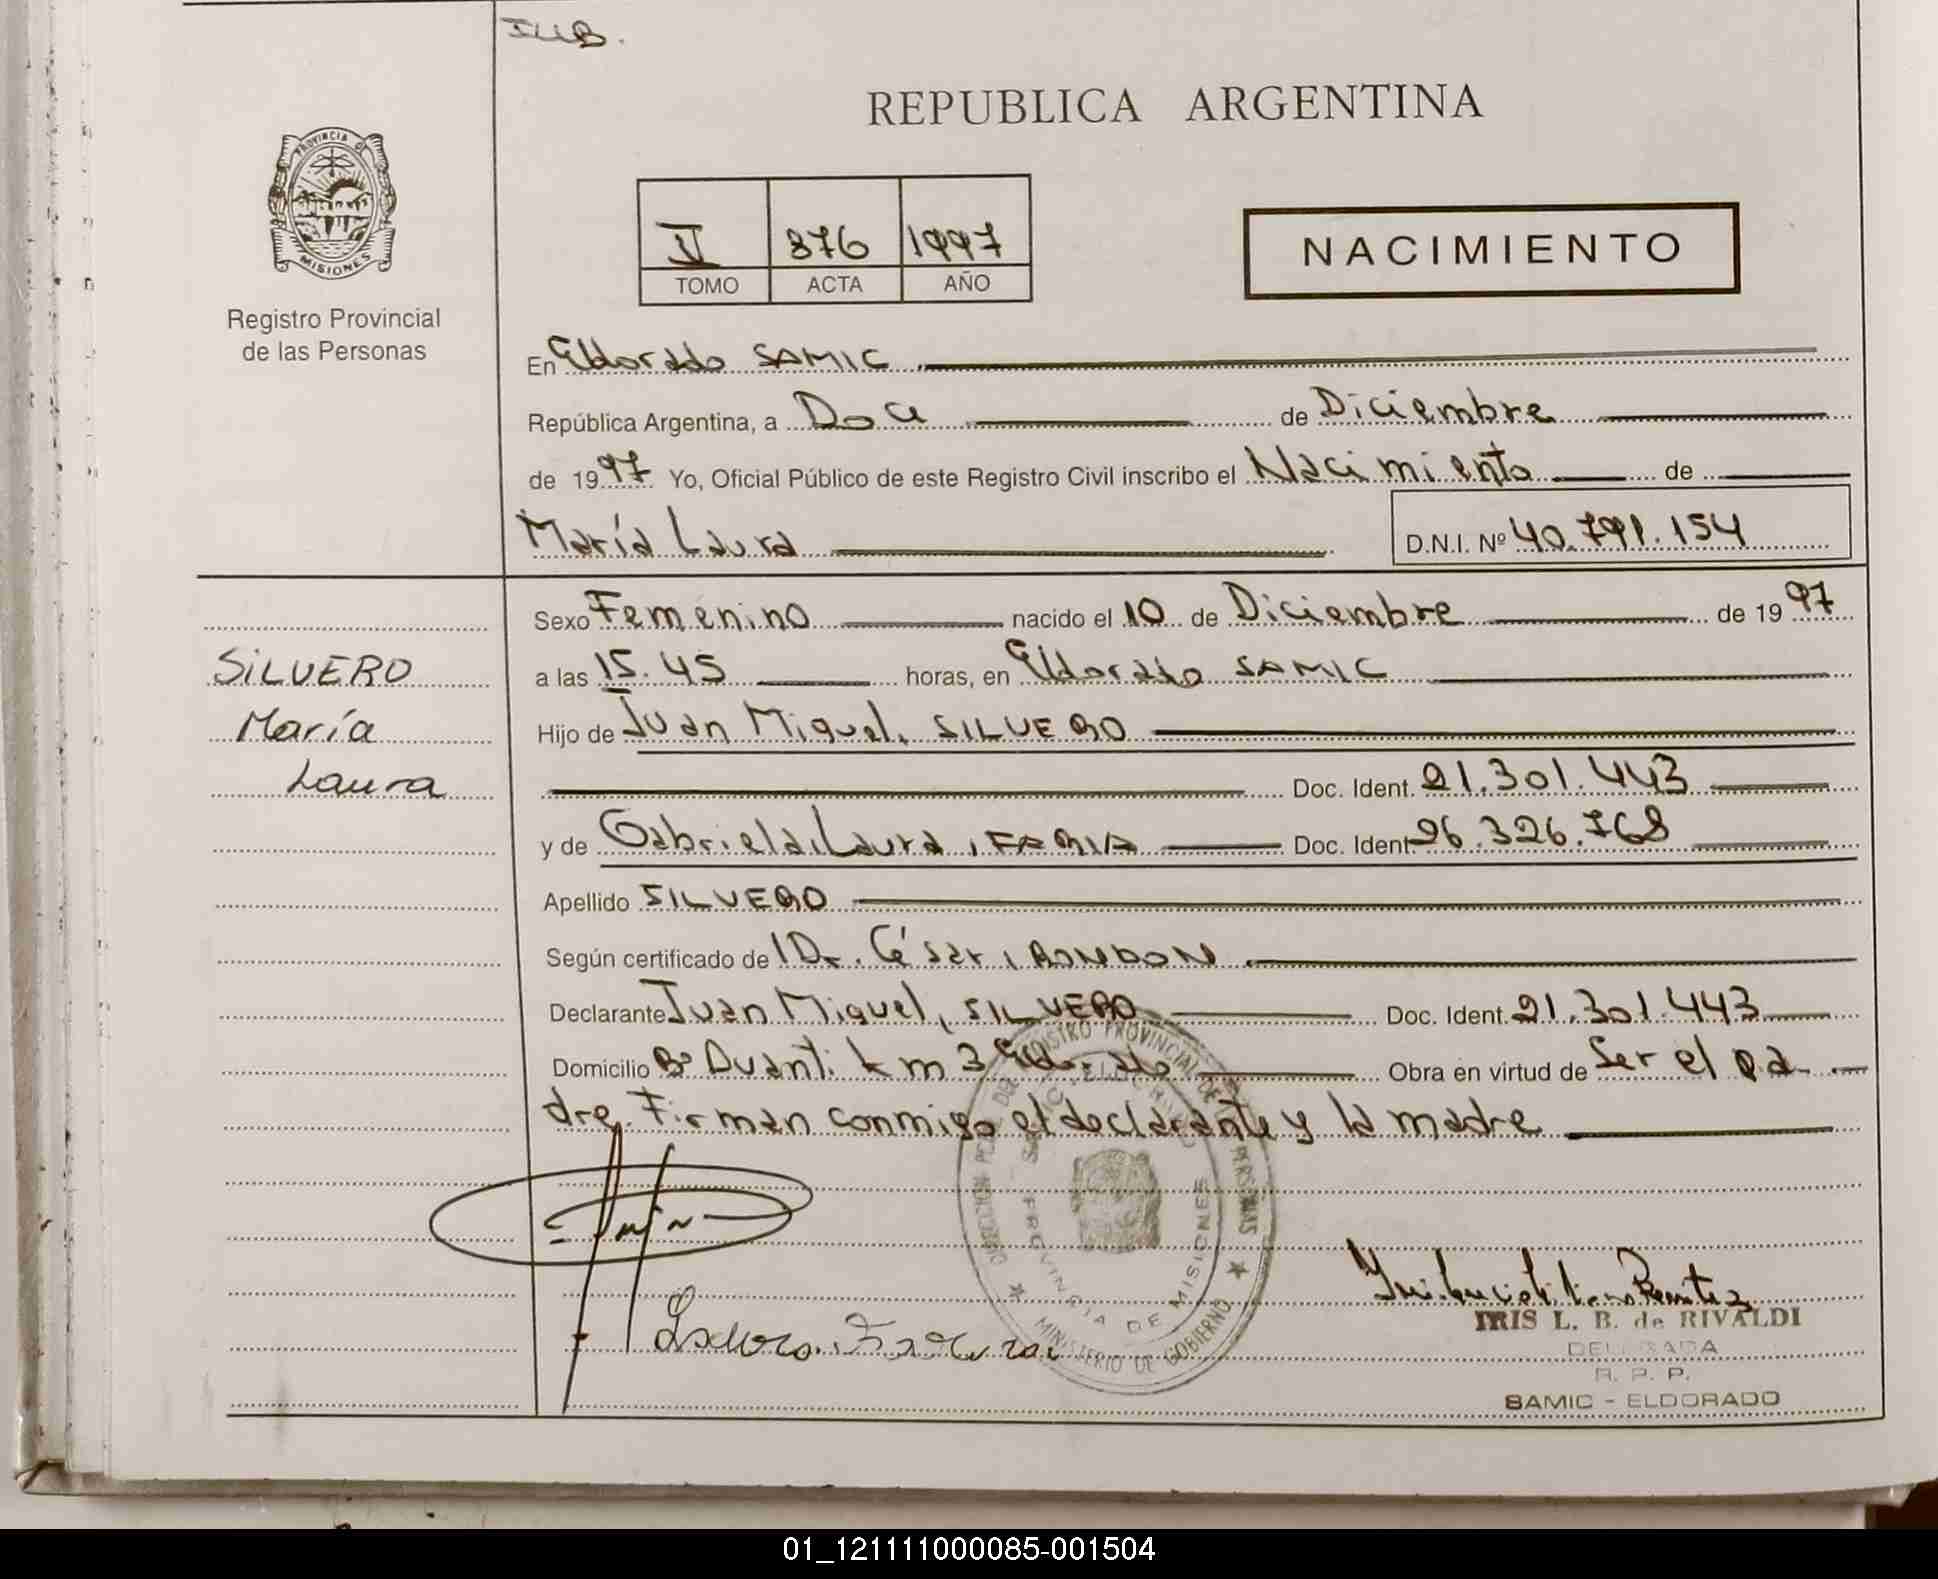 REPUBLICA ARGENTINA
PROVINCIA DE
MISIONES
Registro Provincial
de las Personas
V 876 1997
TOMO ACTA AÑO
NACIMIENTO
En Eldorado SAMIC
República Argentina, a Doce de Diciembre
de 1997 Yo, Oficial Público de este Registro Civil inscribo el Nacimiento de
María Laura D.N.I. Nº 40.791.154
Sexo Femenino nacido el 10 de Diciembre de 1997
SILVERO
María
Laura
a las 15.45 horas, en Eldorado SAMIC
Hijo de Juan Miguel, SILVERO
Doc. Ident. 21.301.443
y de Gabriela Laura, FARIA Doc. Ident 26.326.768
Apellido SILVERO
Según certificado de Dr. César, RONDON
Declarante Juan Miguel, SILVERO Doc. Ident. 21.301.443
Domicilio Bº Km 3 Eldorado Obra en virtud de Ser el pa
dre. Firman conmigo el declarante y la madre
DIRECCION REGISTRO PROVINCIAL DE LAS PERSONAS
PROVINCIA DE MISIONES
MINISTERIO DE GOBIERNO
IRIS L. B. de RIVALDI
DELEGADA
R. P. P.
SAMIC - ELDORADO
01_121111000085-001504